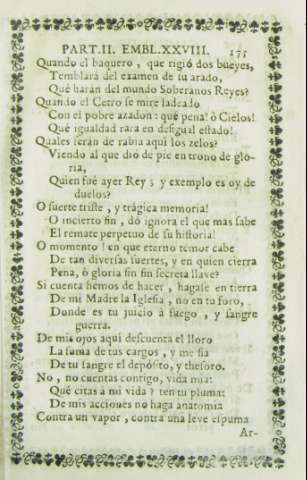 PART.II. EMBL.XXVIII. 175
Quando el baquero, que rigió dos bueyes,
Temblará del examen de tu arado,
Què harán del mundo Soberanos Reyes?
Quando el Cetro se mire ladeado
Con el pobre azadon: què pena! ò Cielos!
Què igualdad rara en desigual estado!
Quales serán de rabia aqui los zelos?
Viendo al que diò de pie en trono de glo-
ria,
Quien fuè ayer Rey; y exemplo es oy de
duelos?
O suerte triste, y trágica memoria!
O incierto fin, dò ignora el que mas sabe
El remate perpetuo de su historia!
O momento! en que eterno temor cabe
De tan diversas suertes, y en quien cierra
Pena, ò gloria sin fin secreta llave?
Si cuenta hemos de hacer, hagase en tierra
De mi Madre la Iglesia, no en tu foro,
Donde es tu juicio à fuego, y sangre
guerra.
De mis ojos aqui descuenta el lloro
La suma de tus cargos, y me fia
De tu sangre el depósito, y thesoro.
No, no cuentas contigo, vida mia:
Què citas a mi vida? ten tu pluma:
De mis acciones no haga anatomia
Contra un vapor, contra una leve espuma
Ar-